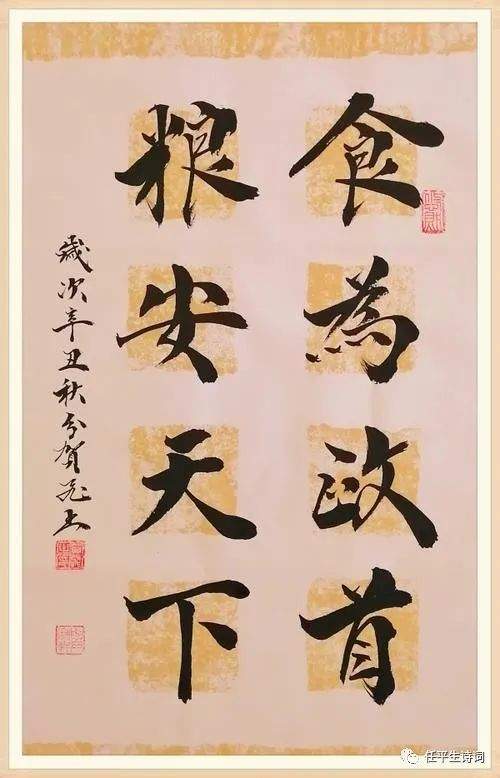 食為政首
粮安天下
歲次辛丑秋分賀
任平生诗词